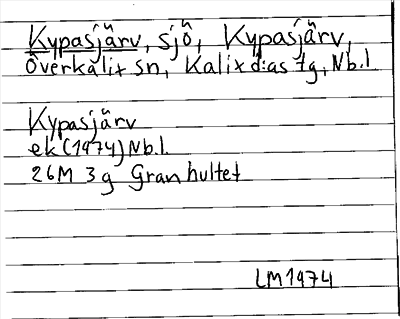 Kypasjärv, sjö, Kypasjärv,
Överkalix sn, Kalix d:as tg, Nb.l
Kypasjärv
ek (1974) Nb.l.
26M 3g Granhultet
LM 1974